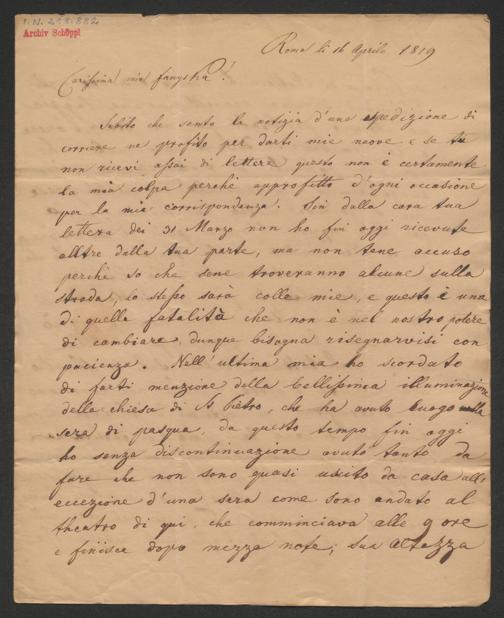 I.N. 258.882
Archiv Schöppl
Roma li 16 Aprile 1819
Carissima mia fanyska!
Subito che sento la notizia d'una espedizione di
corriere ne profito per darti mie nuove e se tu
non ricevi assai di lettere questo non è certamente
la mia colpa perchè approfitto d'ogni occasione
per la mia corrispondenza. Sin dalla cara tua
lettera dei 31 Marzo non ho fin oggi ricevute
alltre dalla tua parte, ma non tene accuso
perchè so che sene troveranno alcune sulla
strada, lo stesso sarà colle mie, e questo è una
di quelle fatalità che non è nel nostro potere
di cambiare, dunque bisogna risegnarvisi con
pacienza. Nell'ultima mia ho scordato
di farti menzione della bellissima illuminazione
della chiesa di St Pietro, che ha avuto luogo nella
sera di pasqua, da questo tempo fin oggi
ho senza discontinuazione avuto tanto da
fare che non sono quasi uscito da casa all'
eccezione d'una sera come sono andato al
theatro di qui, che comminciava alle 9 ore
e finisce dopo mezza notte; sua altezza